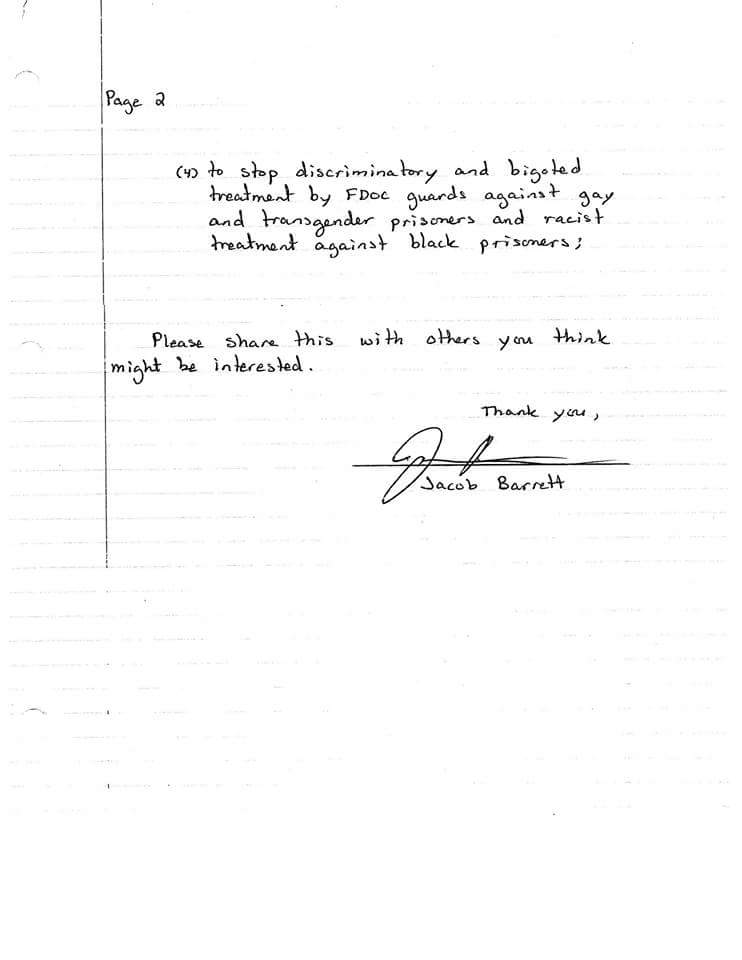 Page 2
(4) to stop discriminatory and bigoted
treatment by FDOC guards against gay
and transgender prisoners and racist
treatment against black prisoners;
Please share this with others you think
might be interested.
Thank you,
Jacob Barrett